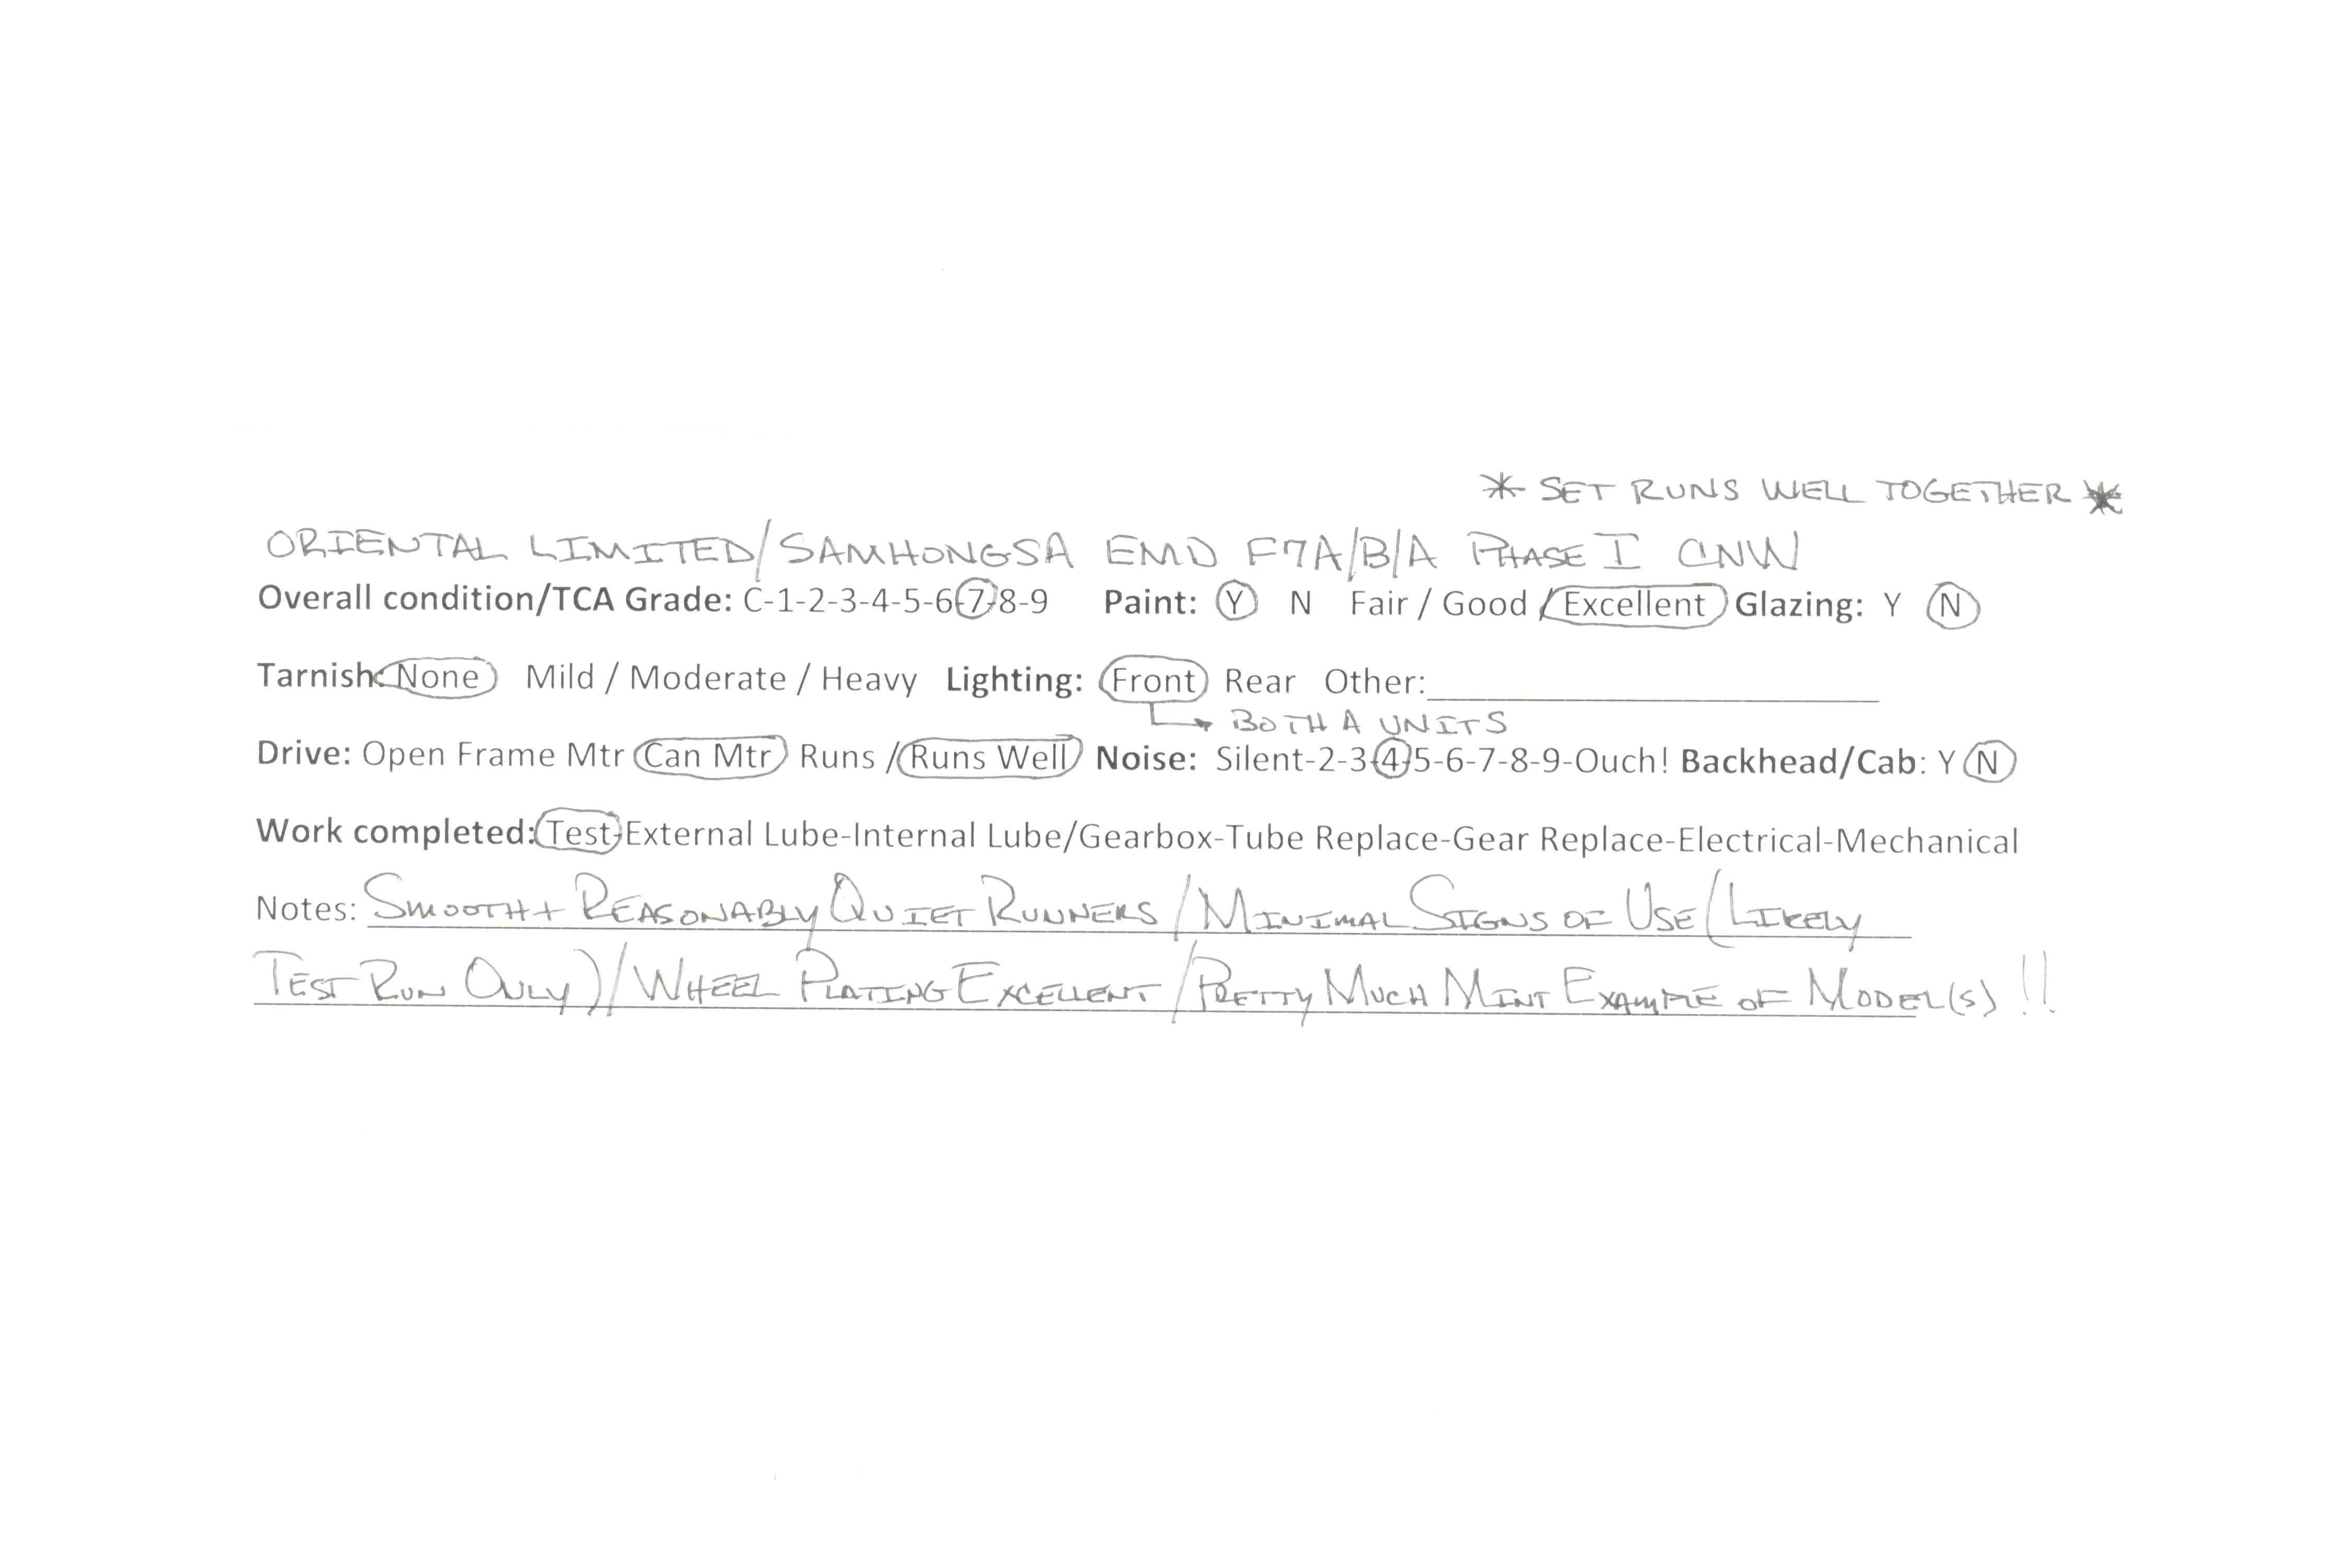 * SET RUNS WELL TOGETHER *
ORIENTAL LIMITED/SAMHONGSA EMD F7A/B/A PHASE I CNW
Overall condition/TCA Grade: C-1-2-3-4-5-6-7-8-9 Paint: Y N Fair / Good / Excellent Glazing: Y N
Tarnish: None Mild / Moderate / Heavy Lighting: Front Rear Other:
BOTH A UNITS
Drive: Open Frame Mtr Can Mtr Runs / Runs Well Noise: Silent-2-3-4-5-6-7-8-9-Ouch! Backhead/Cab: Y N
Work completed: Test-External Lube-Internal Lube/Gearbox-Tube Replace-Gear Replace-Electrical-Mechanical
Notes: SMOOTH + REASONABLY QUIET RUNNERS / MINIMAL SIGNS OF USE (LIKELY
TEST RUN ONLY) / WHEEL PLATING EXCELLENT / PRETTY MUCH MINT EXAMPLE OF MODEL(S) !!